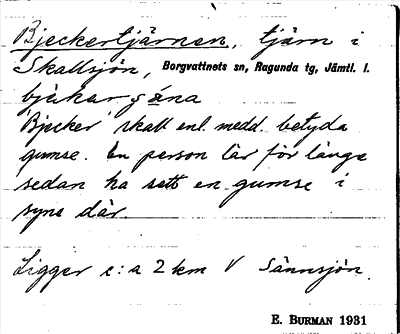 Bjeckertjärnen, tjärn i
Skallsjön, Borgvattnets sn, Ragunda tg, Jämtl. l.
'Bjecker' skall enl. medd. betyda
gumse. En person lär för länge
sedan ha sett en gumse i
syne där.
Ligger c:a 2 km V Sännsjön.
E. BURMAN 1931